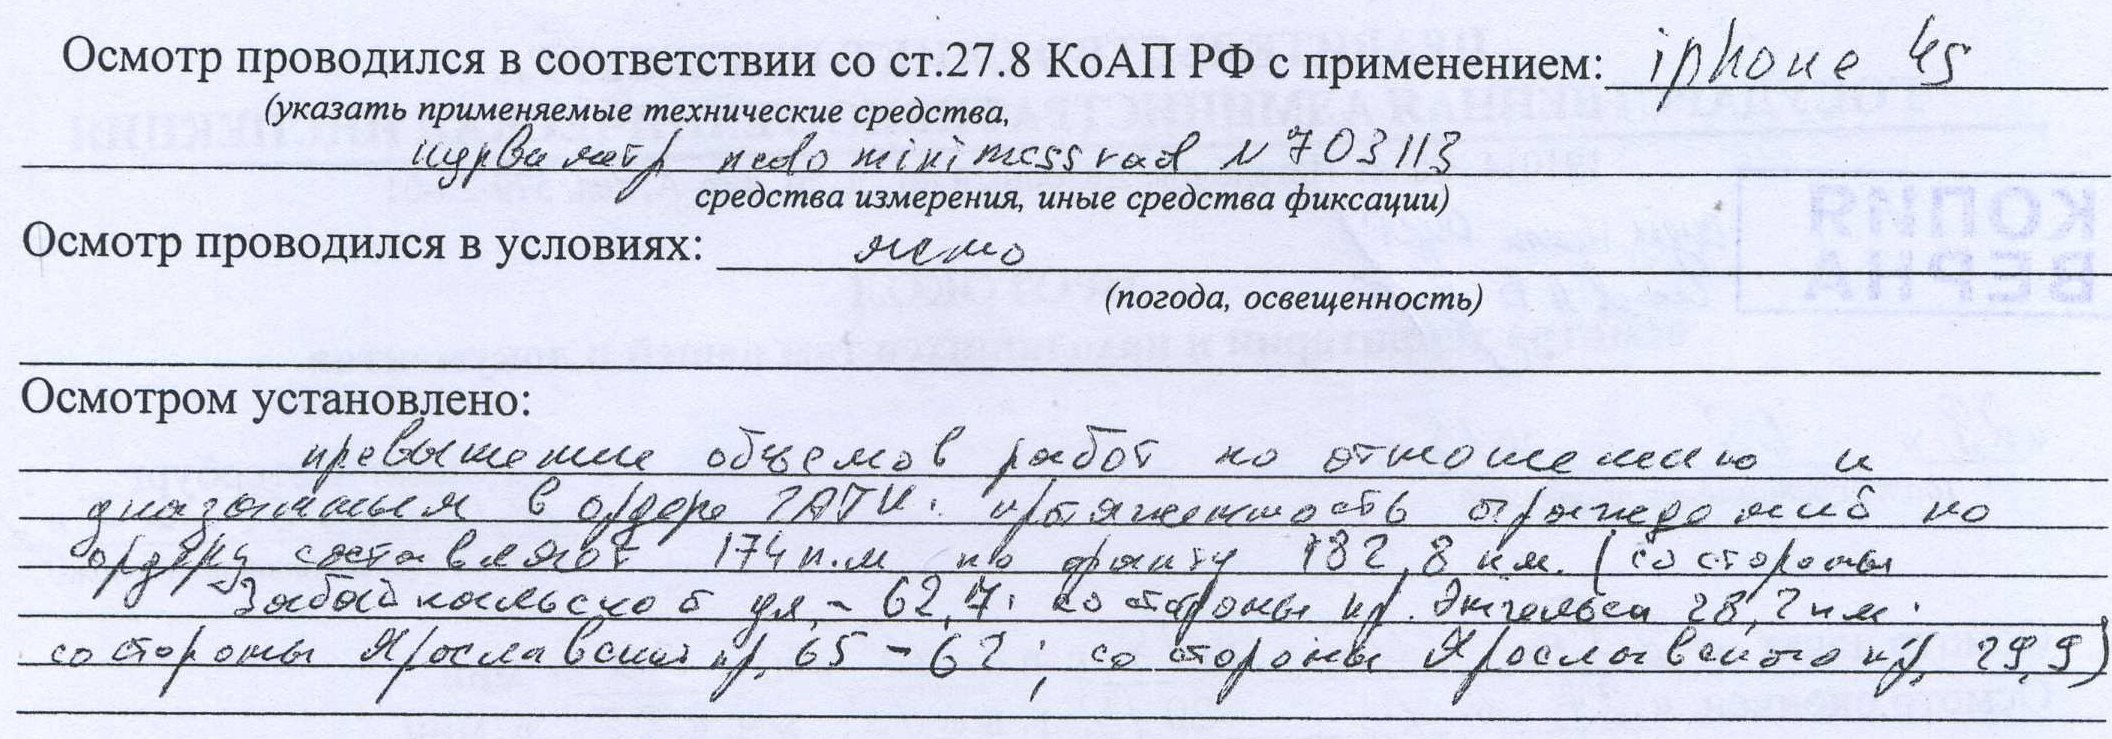 Осмотр проводился в соответствии со ст.27.8 КоАП РФ с применением: iphone 4s
(указать применяемые технические средства,
курвиметр nedo mini messrad N 703113
средства измерения, иные средства фиксации)
Осмотр проводился в условиях: ясно
(погода, освещенность)
Осмотром установлено:
превышение объемов работ по отношению к
указанным в ордере ГАТИ: протяженность ограждений по
ордеру составляет 174 п.м по факту 182,8 п.м. (со стороны
Забайкальской ул. - 62,7; со стороны пр. Энгельса 28,2 п.м;
со стороны Ярославский пр. 65 - 62; со стороны Ярославского пр. 29,9)
КОПИЯ
ВЕРНА